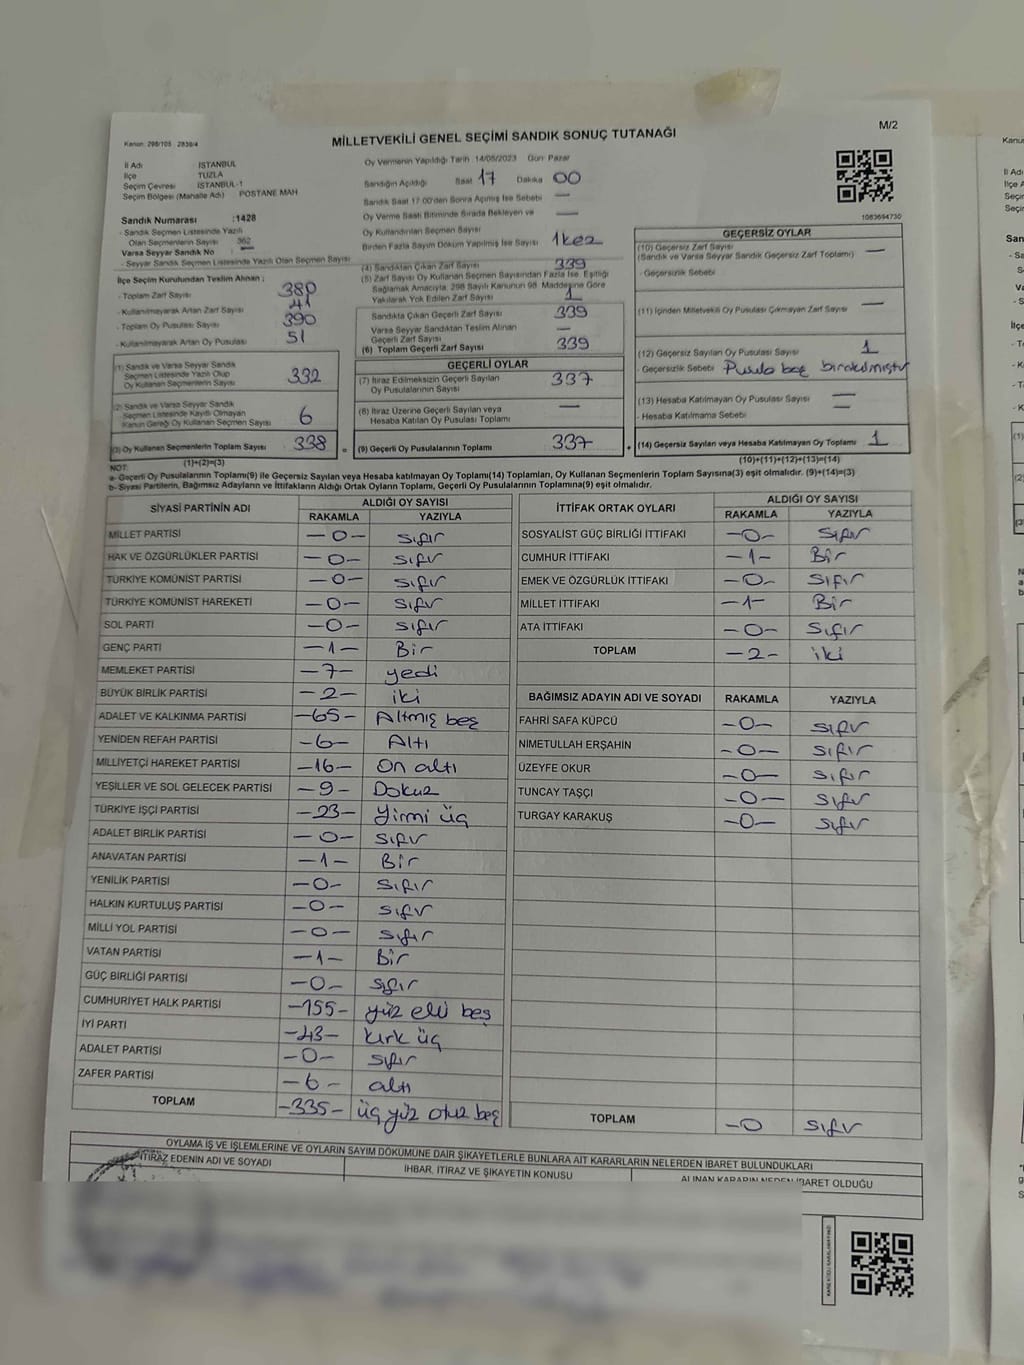 M/2
MİLLETVEKİLİ GENEL SEÇİMİ SANDIK SONUÇ TUTANAĞI
Kanun: 298/105 2839/4
İl Adı ISTANBUL
İlçe TUZLA
Seçim Çevresi ISTANBUL-1
Seçim Bölgesi (Mahalle Adı) POSTANE MAH
Sandık Numarası :1428
- Sandık Seçmen Listesinde Yazılı
Olan Seçmenlerin Sayısı 362
Varsa Seyyar Sandık No
- Seyyar Sandık Seçmen Listesinde Yazılı Olan Seçmen Sayısı
Oy Vermenin Yapıldığı Tarih :14/05/2023 Gün: Pazar
Sandığın Açıldığı Saat 17 Dakika 00
Sandık Saat 17.00'den Sonra Açılmış İse Sebebi —
Oy Verme Saati Bitiminde Sırada Bekleyen ve
Oy Kullandırılan Seçmen Sayısı —
Birden Fazla Sayım Döküm Yapılmış İse Sayısı 1kez
1083694730
İlçe Seçim Kurulundan Teslim Alınan ;
- Toplam Zarf Sayısı 380
- Kullanılmayarak Artan Zarf Sayısı 41
- Toplam Oy Pusulası Sayısı 390
- Kullanılmayarak Artan Oy Pusulası 51
(1) Sandık ve Varsa Seyyar Sandık
Seçmen Listesinde Yazılı Olup
Oy Kullanan Seçmenlerin Sayısı 332
(2) Sandık ve Varsa Seyyar Sandık
Seçmen Listesinde Kayıtlı Olmayan
Kanun Gereği Oy Kullanan Seçmen Sayısı 6
(3) Oy Kullanan Seçmenlerin Toplam Sayısı 338
(1)+(2)=(3)
(4) Sandıktan Çıkan Zarf Sayısı 339
(5) Zarf Sayısı Oy Kullanan Seçmen Sayısından Fazla İse, Eşitliği
Sağlamak Amacıyla, 298 Sayılı Kanunun 98. Maddesine Göre
Yakılarak Yok Edilen Zarf Sayısı 1
Sandıkta Çıkan Geçerli Zarf Sayısı 339
Varsa Seyyar Sandıktan Teslim Alınan
Geçerli Zarf Sayısı —
(6) Toplam Geçerli Zarf Sayısı 339
GEÇERLİ OYLAR
(7) İtiraz Edilmeksizin Geçerli Sayılan
Oy Pusulasının Sayısı 337
(8) İtiraz Üzerine Geçerli Sayılan veya
Hesaba Katılan Oy Pusulası Toplamı —
(9) Geçerli Oy Pusulalarının Toplamı 337
GEÇERSİZ OYLAR
(10) Geçersiz Zarf Sayısı
(Sandık ve Varsa Seyyar Sandık Geçersiz Zarf Toplamı) —
- Geçersizlik Sebebi
(11) İçinden Milletvekili Oy Pusulası Çıkmayan Zarf Sayısı —
(12) Geçersiz Sayılan Oy Pusulası Sayısı 1
- Geçersizlik Sebebi Pusula boş bırakılmıştır
(13) Hesaba Katılmayan Oy Pusulası Sayısı —
- Hesaba Katılmama Sebebi —
(14) Geçersiz Sayılan veya Hesaba Katılmayan Oy Toplamı 1
(10)+(11)+(12)+(13)=(14)
NOT:
a- Geçerli Oy Pusulalarının Toplamı(9) ile Geçersiz Sayılan veya Hesaba katılmayan Oy Toplamı(14) Toplamları, Oy Kullanan Seçmenlerin Toplam Sayısına(3) eşit olmalıdır. (9)+(14)=(3)
b- Siyasi Partilerin, Bağımsız Adayların ve İttifakların Aldığı Ortak Oyların Toplamı, Geçerli Oy Pusulalarının Toplamına(9) eşit olmalıdır.
SİYASİ PARTİNİN ADI ALDIĞI OY SAYISI
RAKAMLA YAZIYLA
MİLLET PARTİSİ —0— sıfır
HAK VE ÖZGÜRLÜKLER PARTİSİ —0— sıfır
TÜRKİYE KOMÜNİST PARTİSİ —0— sıfır
TÜRKİYE KOMÜNİST HAREKETİ —0— sıfır
SOL PARTİ —0— sıfır
GENÇ PARTİ —1— Bir
MEMLEKET PARTİSİ —7— yedi
BÜYÜK BİRLİK PARTİSİ —2— iki
ADALET VE KALKINMA PARTİSİ —65— Altmış beş
YENİDEN REFAH PARTİSİ —6— Altı
MİLLİYETÇİ HAREKET PARTİSİ —16— On altı
YEŞİLLER VE SOL GELECEK PARTİSİ —9— Dokuz
TÜRKİYE İŞÇİ PARTİSİ —23— Yirmi üç
ADALET BİRLİK PARTİSİ —0— sıfır
ANAVATAN PARTİSİ —1— Bir
YENİLİK PARTİSİ —0— sıfır
HALKIN KURTULUŞ PARTİSİ —0— sıfır
MİLLİ YOL PARTİSİ —0— sıfır
VATAN PARTİSİ —1— Bir
GÜÇ BİRLİĞİ PARTİSİ —0— sıfır
CUMHURİYET HALK PARTİSİ —155— yüz elli beş
İYİ PARTİ —43— kırk üç
ADALET PARTİSİ —0— sıfır
ZAFER PARTİSİ —6— altı
TOPLAM —335— üç yüz otuz beş
İTTİFAK ORTAK OYLARI ALDIĞI OY SAYISI
RAKAMLA YAZIYLA
SOSYALİST GÜÇ BİRLİĞİ İTTİFAKI —0— sıfır
CUMHUR İTTİFAKI —1— Bir
EMEK VE ÖZGÜRLÜK İTTİFAKI —0— sıfır
MİLLET İTTİFAKI —1— Bir
ATA İTTİFAKI —0— sıfır
TOPLAM —2— iki
BAĞIMSIZ ADAYIN ADI VE SOYADI RAKAMLA YAZIYLA
FAHRİ SAFA KÜPCÜ —0— sıfır
NİMETULLAH ERŞAHİN —0— sıfır
ÜZEYFE OKUR —0— sıfır
TUNCAY TAŞÇI —0— sıfır
TURGAY KARAKUŞ —0— sıfır
TOPLAM —0 sıfır
OYLAMA İŞ VE İŞLEMLERİNE VE OYLARIN SAYIM DÖKÜMÜNE DAİR ŞİKAYETLERLE BUNLARA AİT KARARLARIN NELERDEN İBARET BULUNDUKLARI
İTİRAZ EDENİN ADI VE SOYADI
İHBAR, İTİRAZ VE ŞİKAYETİN KONUSU
ALINAN KARARIN NEDEN İBARET OLDUĞU